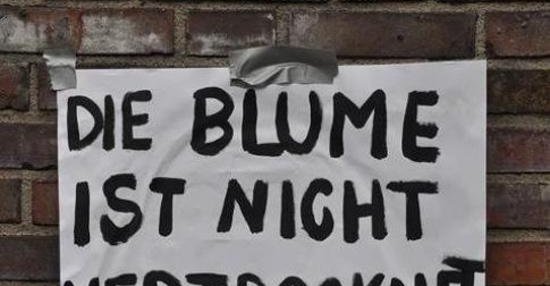 DIE BLUME
IST NICHT